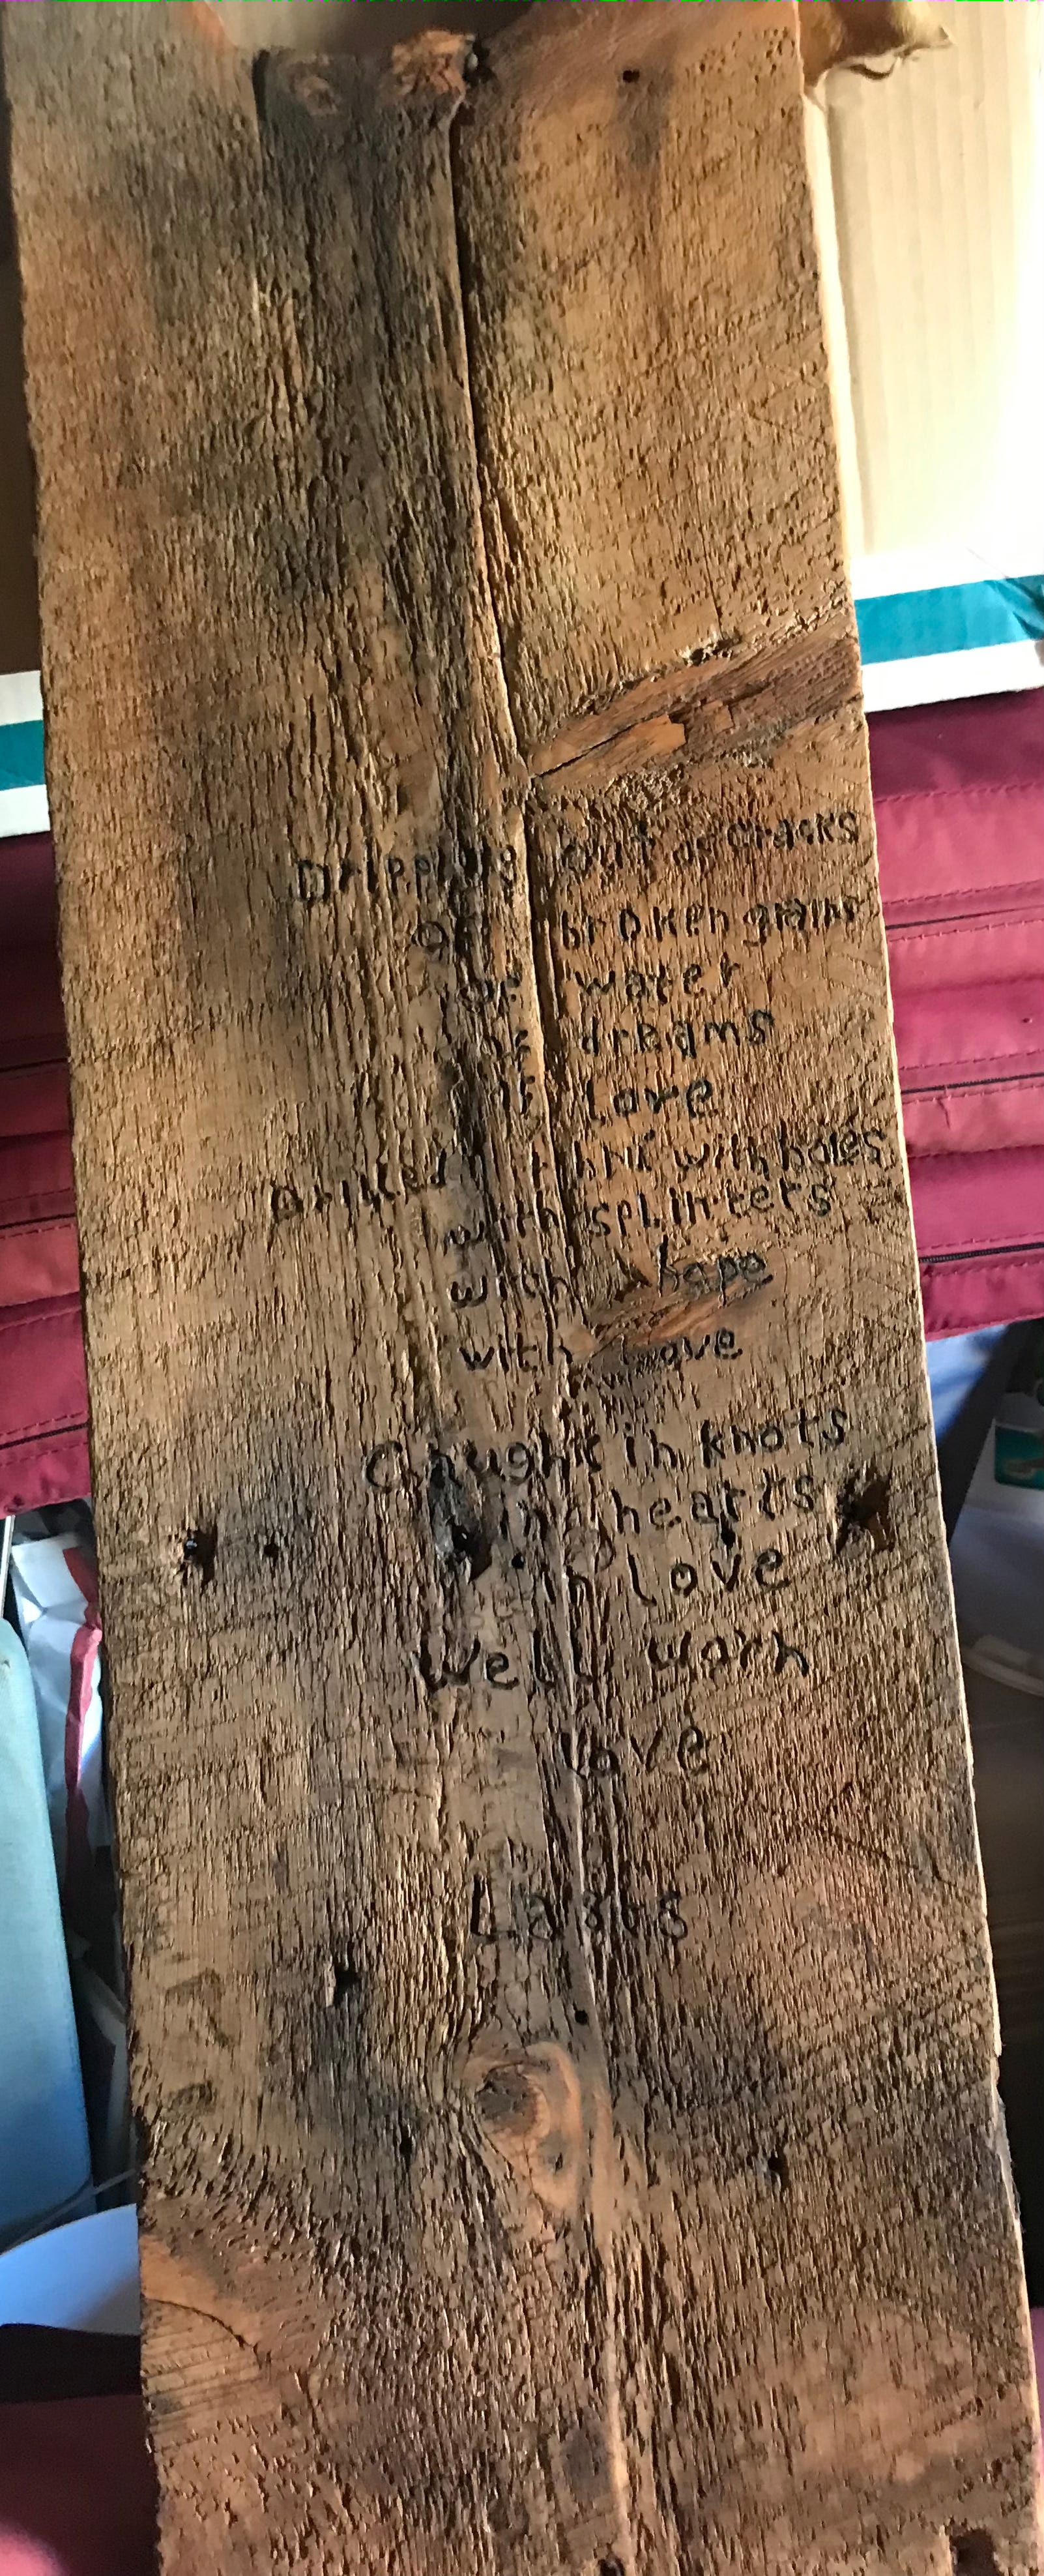 Dripping out of cracks
of broken grains
of water
of dreams
of love
Drilled with holes
with splinters
with hope
with love
Caught in knots
in hearts
in love
Well worn
love
Lasts